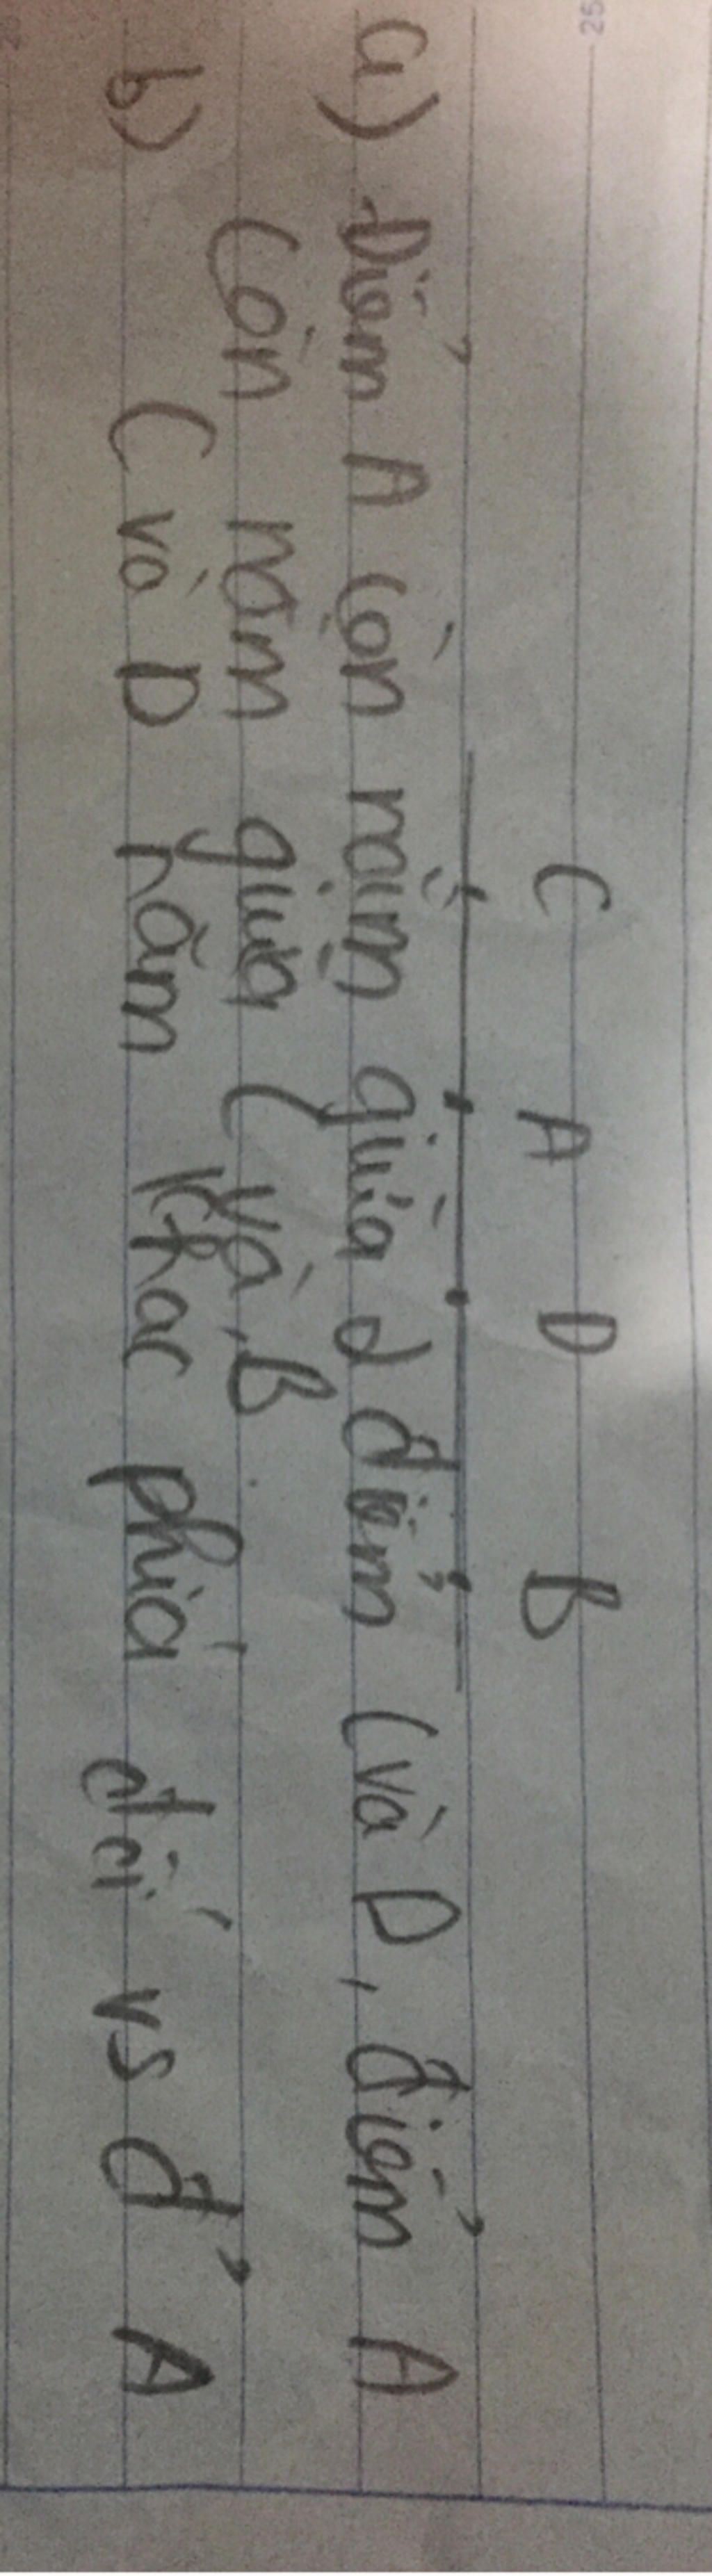 25
C A D B
a) Điểm A còn nằm giữa 2 điểm C và D, điểm A
còn nằm giữa C và B
b) C và D nằm khác phía đối vs đ' A